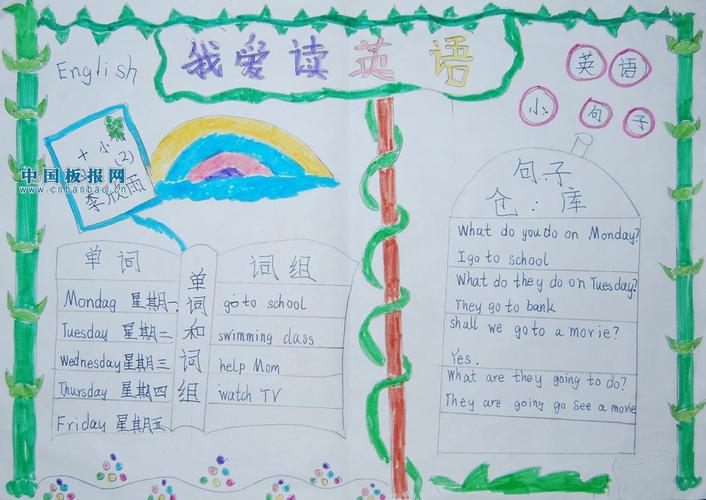 我爱读英语
English
英语
小句子
十小
(2)
李欣雨
中国板报网
www.cnbanbao.cn
单词
单词和词组
词组
Mondag 星期一
go to school
Tuesday 星期二
swimming class
Wednesday 星期三
help Mom
Thursday 星期四
watch TV
Friday 星期五
句子
仓:库
What do you do on Monday?
I go to school
What do they do on Tuesday?
They go to bank
shall we go to a movie?
Yes.
What are they going to do?
They are going go see a movie